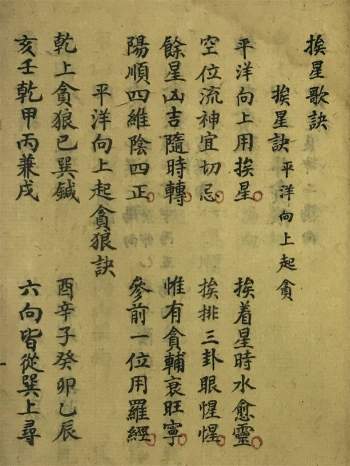 挨星歌訣
挨星訣 平洋向上起貪
平洋向上用挨星 挨着星時水愈靈
空位流神宜切忌 挨排三卦眼惺惺
餘星凶吉隨時轉 惟有貪輔衰旺寧
陽順四維陰四正 參前一位用羅經
平洋向上起貪狼訣
乾上貪狼巳巽鍼 酉辛子癸卯乙辰
亥壬乾甲丙兼戌 六向皆從巽上尋